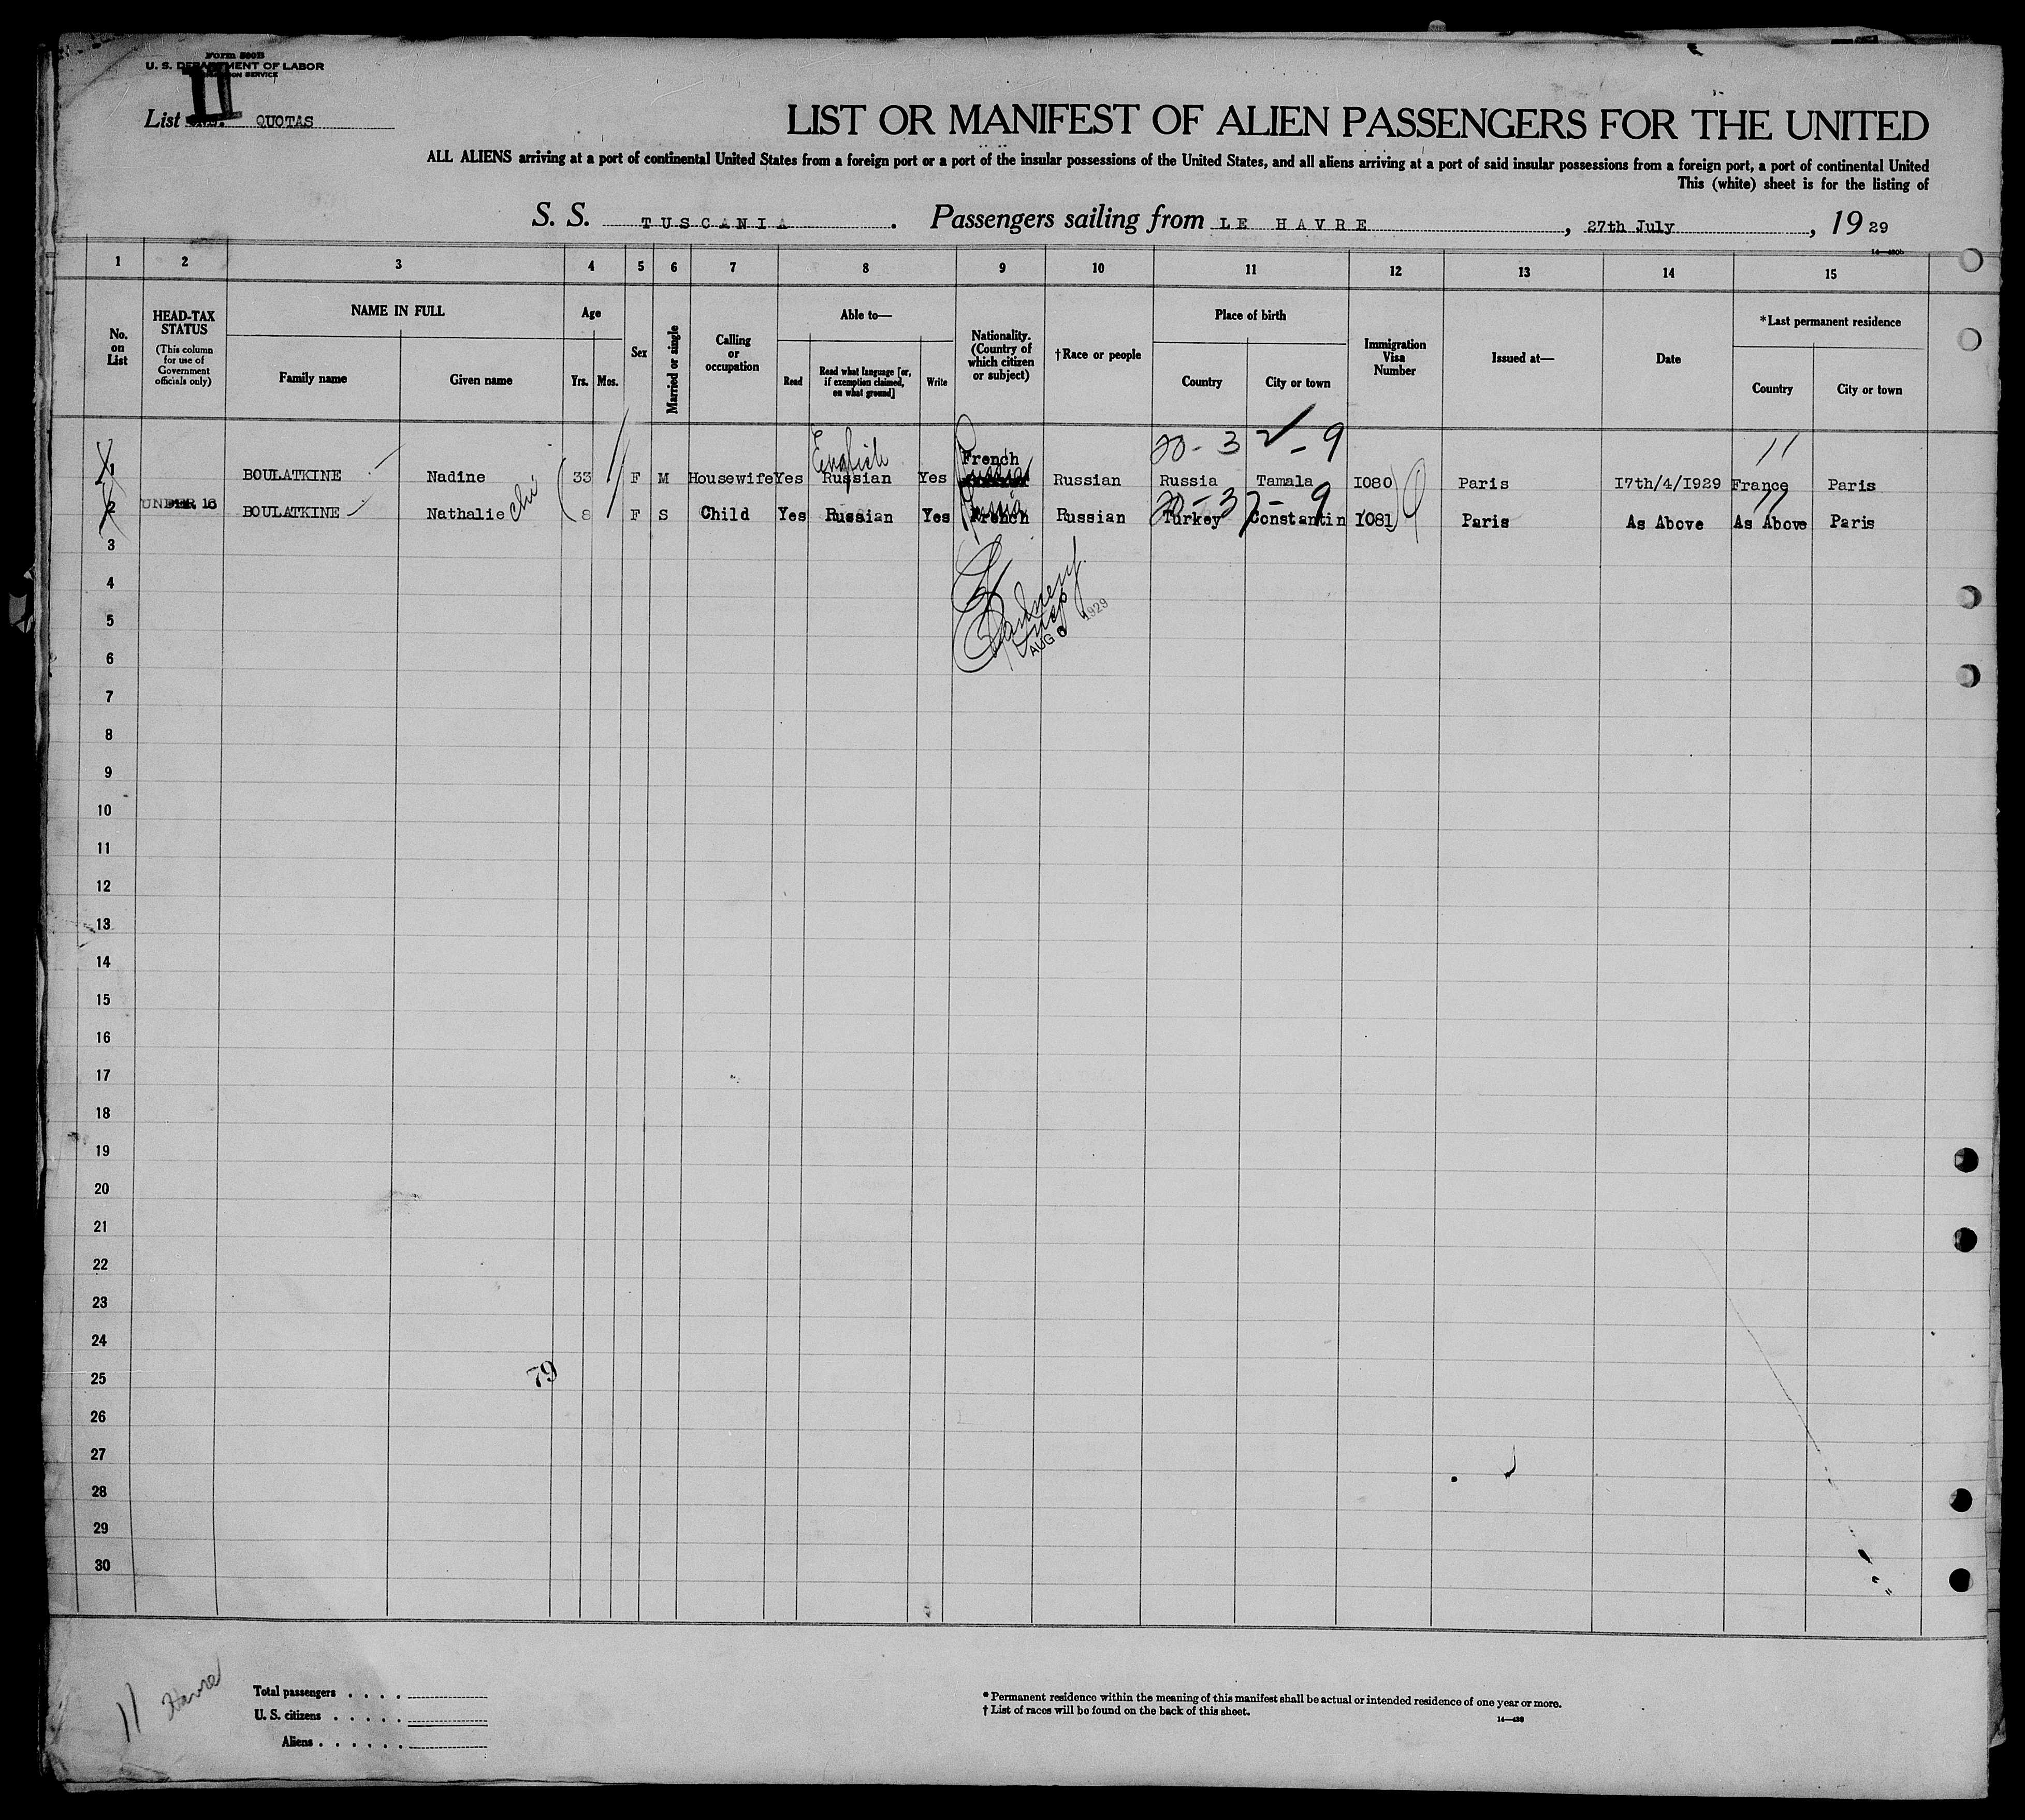 Form 500B
U. S. DEPARTMENT OF LABOR
IMMIGRATION SERVICE
11
List QUOTAS
LIST OR MANIFEST OF ALIEN PASSENGERS FOR THE UNITED
ALL ALIENS arriving at a port of continental United States from a foreign port or a port of the insular possessions of the United States, and all aliens arriving at a port of said insular possessions from a foreign port, a port of continental United
This (white) sheet is for the listing of
S. S. TUSCANIA. Passengers sailing from LE HAVRE, 27th July, 19 29
1 2 3 4 5 6 7 8 9 10 11 12 13 14 15
No. on List
HEAD-TAX STATUS
(This column for use of Government officials only)
NAME IN FULL
Family name Given name
Age
Yrs. Mos.
Sex
Married or single
Calling or occupation
Able to—
Read
Read what language [or, if exemption claimed, on what ground]
Write
Nationality. (Country of which citizen or subject)
†Race or people
Place of birth
Country City or town
Immigration Visa Number
Issued at—
Date
*Last permanent residence
Country City or town
English French 20-3 2-9 11
1 BOULATKINE Nadine 33 F M Housewife Yes Russian Yes Russian Russia Tamala 1080 Paris 17th/4/1929 France Paris
20-37-9 11
2 UNDER 16 BOULATKINE Nathalie chi 8 F S Child Yes Russian Yes French Russia Russian Turkey Constantin 1081 Paris As Above As Above Paris
3
4
5
AUG 6 1929
6
7
8
9
10
11
12
13
14
15
16
17
18
19
20
21
22
23
24
25
79
26
27
28
29
30
11 Havre
Total passengers . . . .
U. S. citizens . . . . .
Aliens . . . . . .
* Permanent residence within the meaning of this manifest shall be actual or intended residence of one year or more.
† List of races will be found on the back of this sheet.